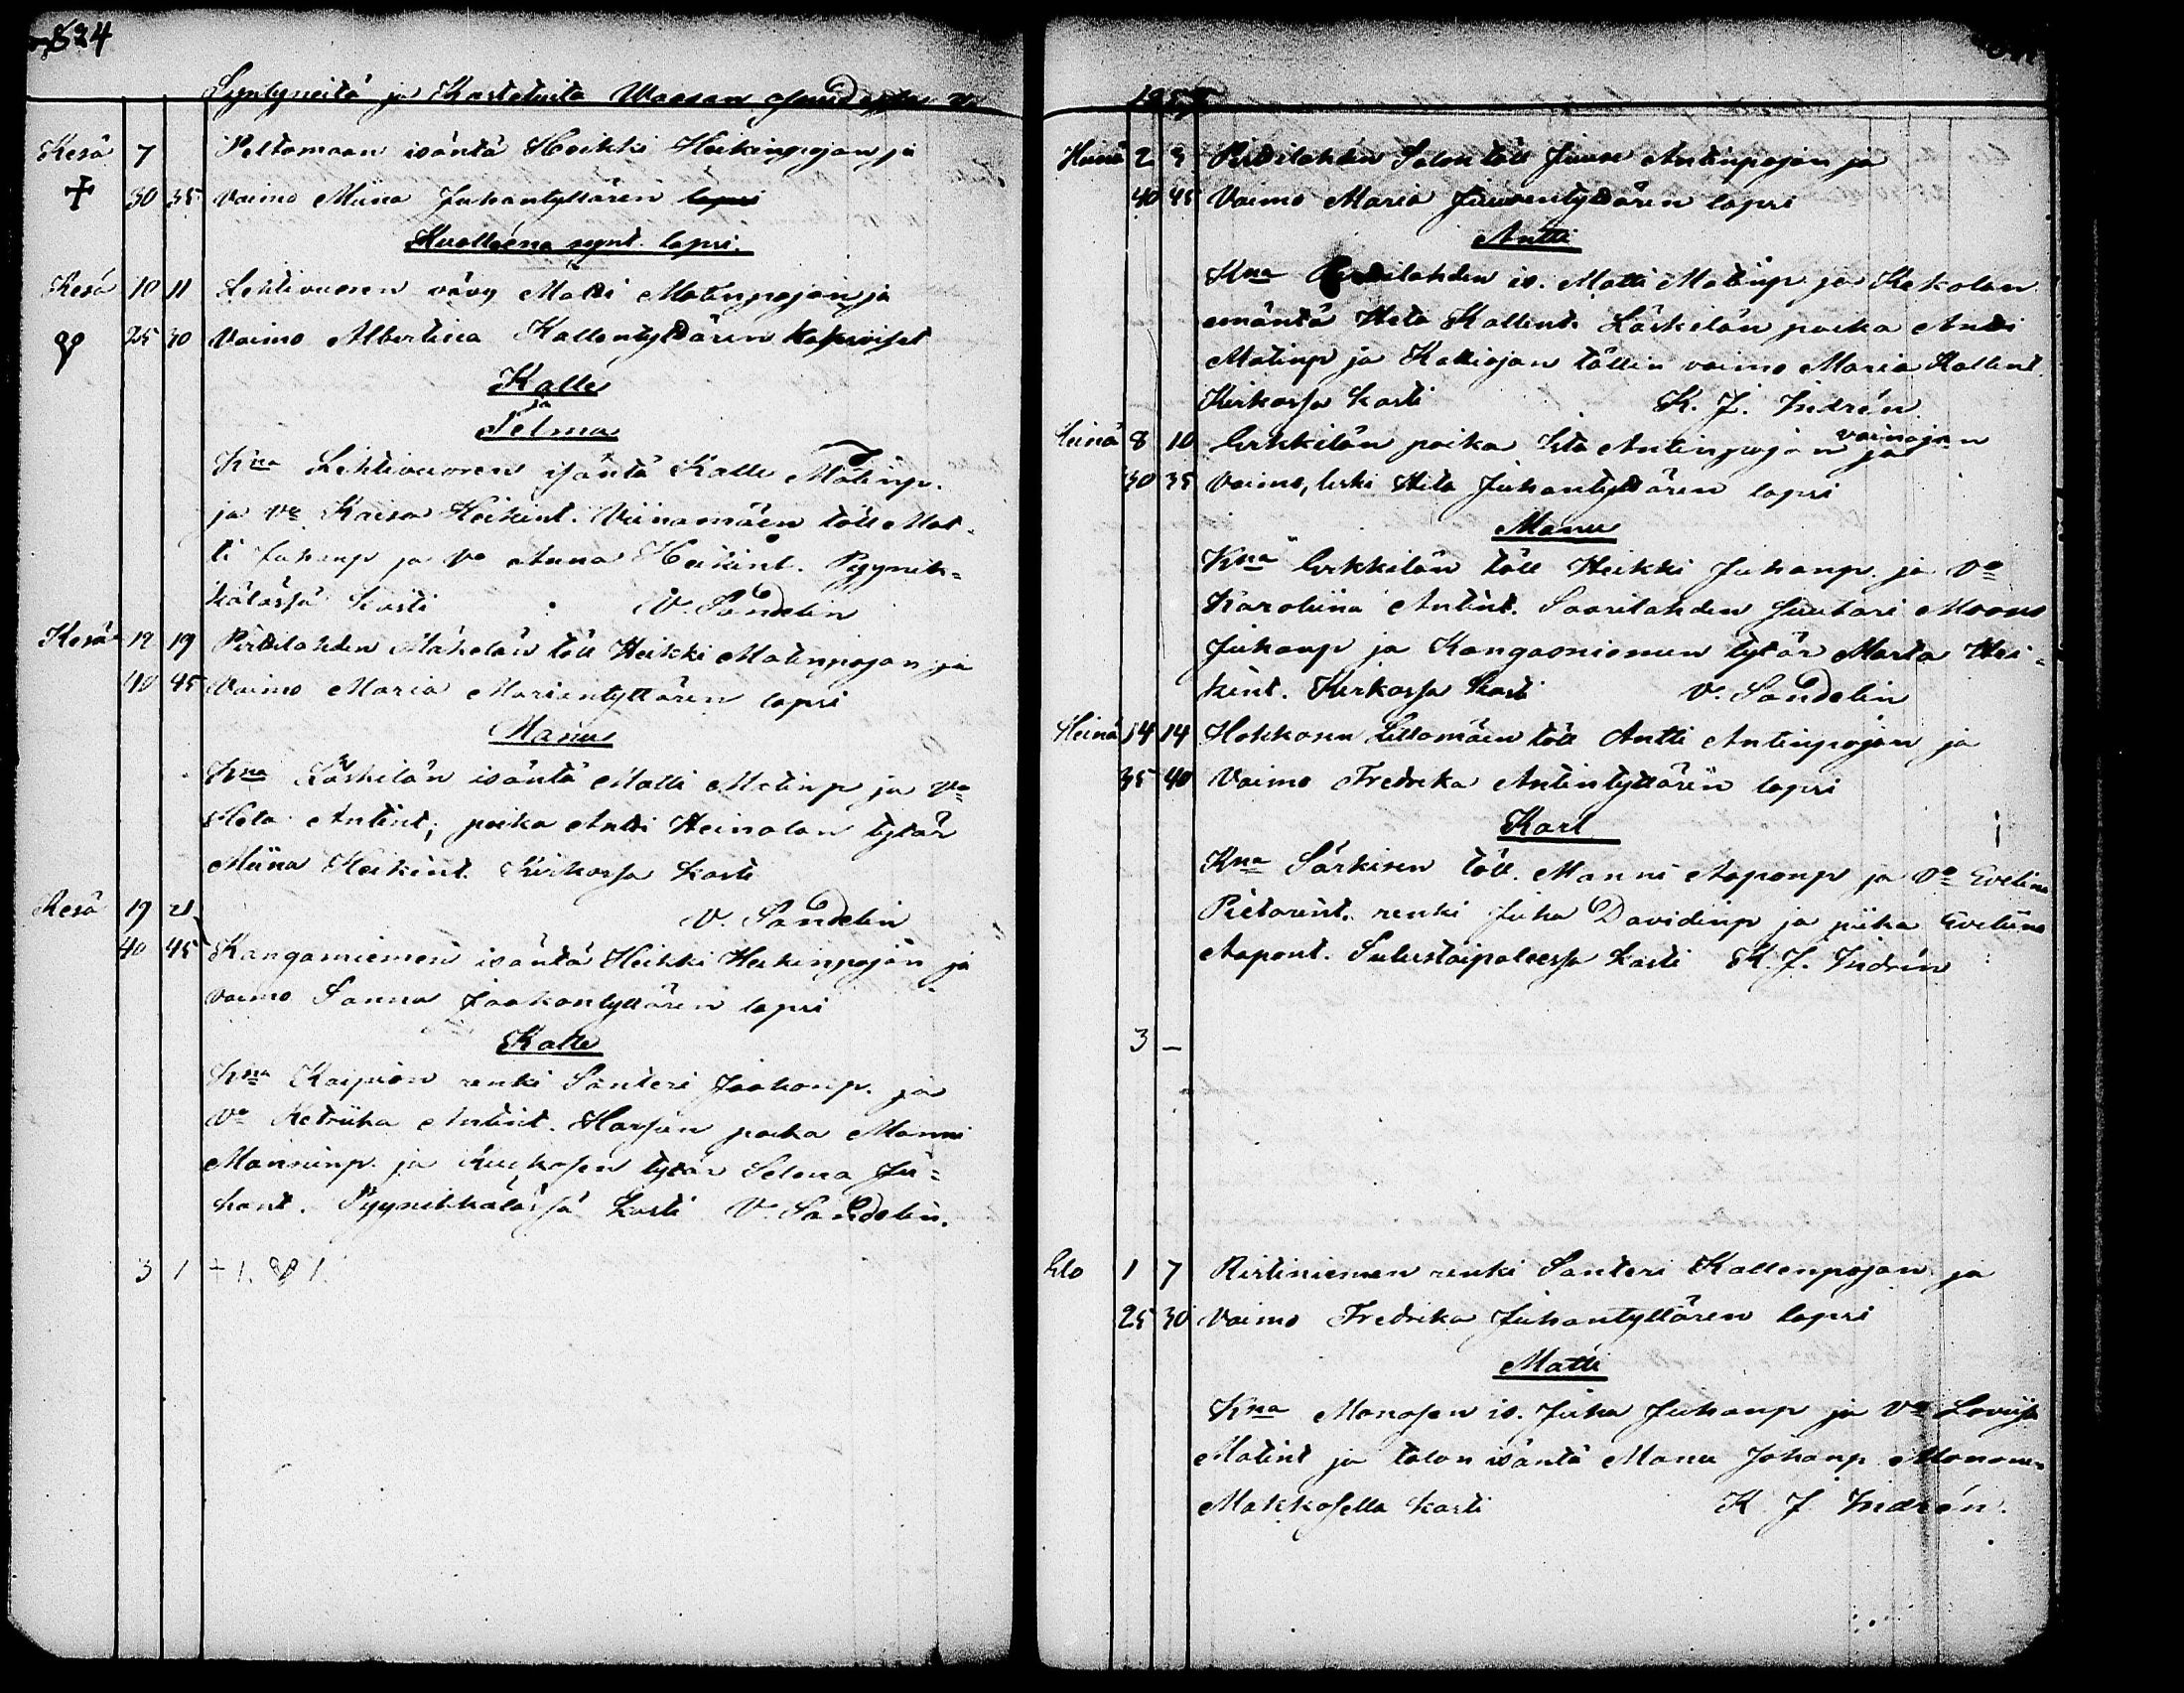 824
Syntyneitä ja Kastetuita Waasan
Kesä 7 Peltomaan isäntä Heikki Heikinpojan ja
† 30 35 Vaimo Miina Juhantyttären lapsi
Kuolleena synt. lapsi.
Kesä 10 11 Lehtivuoren vävy Matti Matinpojan ja
25 30 Vaimo Albertina Kallentyttären kaksoiset
Kalle
ja
Selma
Kna Lehtivuoren isäntä Kalle Matinp.
ja Vo Kaisa Heikint. Viinamäen töll Mat-
ti Juhanp ja Vo Anna Heikint. Pyynik-
kälässä kasti V. Sandelin
Kesä 12 19 Pirttilahden Mäkelän töll Heikki Matinpojan ja
40 45 Vaimo Maria Mariantyttären lapsi
Manu
Kna Läskelän isäntä Matti Matinp ja Vo
Heta Antint; poika Antti Heinolan tytär
Miina Heikint. Kirkossa kasti
Kesä 19 21 V. Sandelin
40 45 Kangasniemen isäntä Heikki Heikinpojan ja
vaimo Sanna Jaakontyttären lapsi
Kalle
Kna Kaipion renki Santeri Jaakonp. ja
Vo Retriika Antint. Harjun poika Manni
Manninp. ja tytär Selma Ju-
hant. Pyynikkälässä kasti V. Sandelin.
3 1 + 1. 1.
Heinä 2 3 Pirttilahden Salon töll Juuse Antinpojan ja
40 45 Vaimo Maria Juusentyttären lapsi
Antti
Kna Pirttilahden is. Matti Matinp ja Kekolan
emäntä Heta Kallent. Läskelän poika Antti
Matinp ja Kalliojan töllin vaimo Maria Kallent.
Kirkossa kasti K. J. Indrén
Heinä 8 10 Erkkilän poika Esa Antinpojan vainajan ja
30 35 Vaimo, leski Heta Juhantyttären lapsi
Manu
Kna Erkkilän töll Heikki Juhanp. ja Vo
Karoliina Antint. Saarilahden suutari Moono
Juhanp ja Kangasniemen tytär Marta Hei-
kint. Kirkossa kasti V. Sandelin
Heinä 14 14 Hokkosen Littomäen töll Antti Antinpojan ja
35 40 Vaimo Fredrika Antintyttären lapsi
Karl
Kna Särkisen töll. Manni Aaponp ja Vo Eveliina
Pietarint. renki Juha Davidinp ja piika Eveliina
Aapont. Sulustaipaleessa kasti K. J. Indrén
3 —
Elo 1 7 Ristiniemen renki Santeri Kallenpojan ja
25 30 Vaimo Fredrika Juhantyttären lapsi
Matti
Kna Monosen is. Juha Juhanp ja Vo Loviisa
Matint ja talon isäntä Manu Johanp Mononen
Makkosella kasti K. J. Indrén.